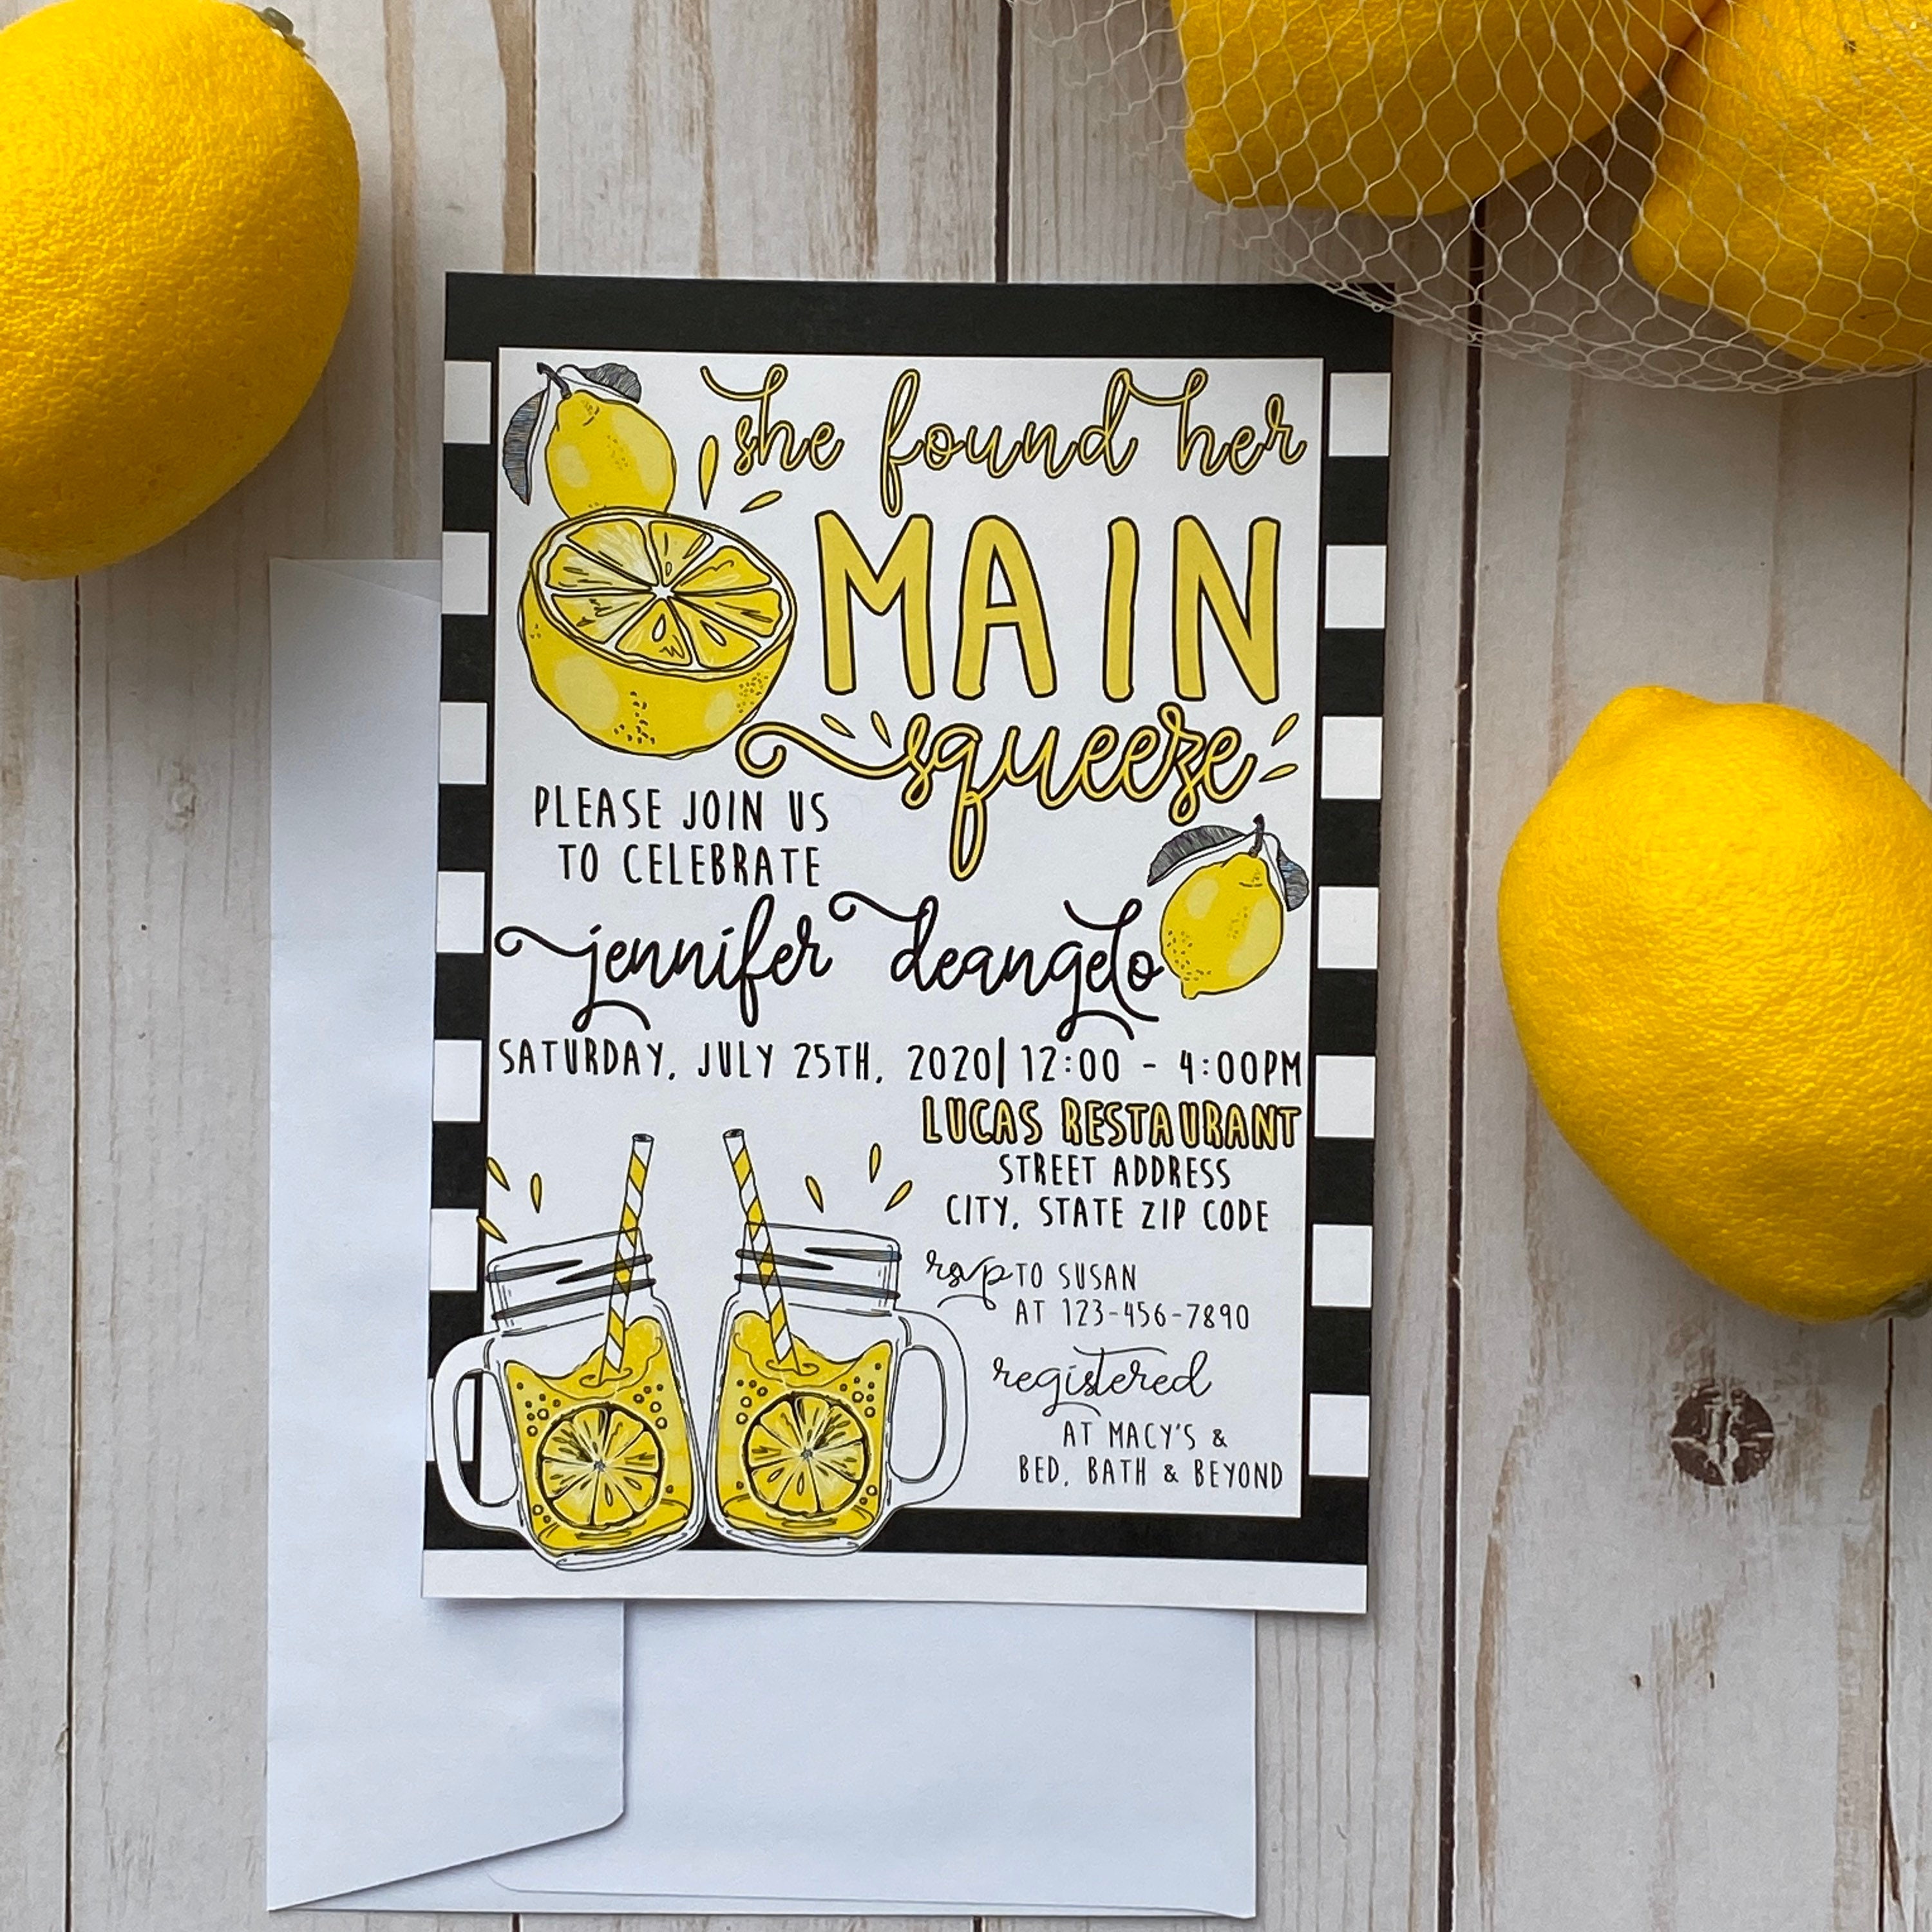 she found her
MAIN
squeeze
PLEASE JOIN US
TO CELEBRATE
jennifer deangelo
SATURDAY, JULY 25TH, 2020| 12:00 - 4:00PM
LUCAS RESTAURANT
STREET ADDRESS
CITY, STATE ZIP CODE
rsvp TO SUSAN
AT 123-456-7890
registered
AT MACY'S &
BED, BATH & BEYOND